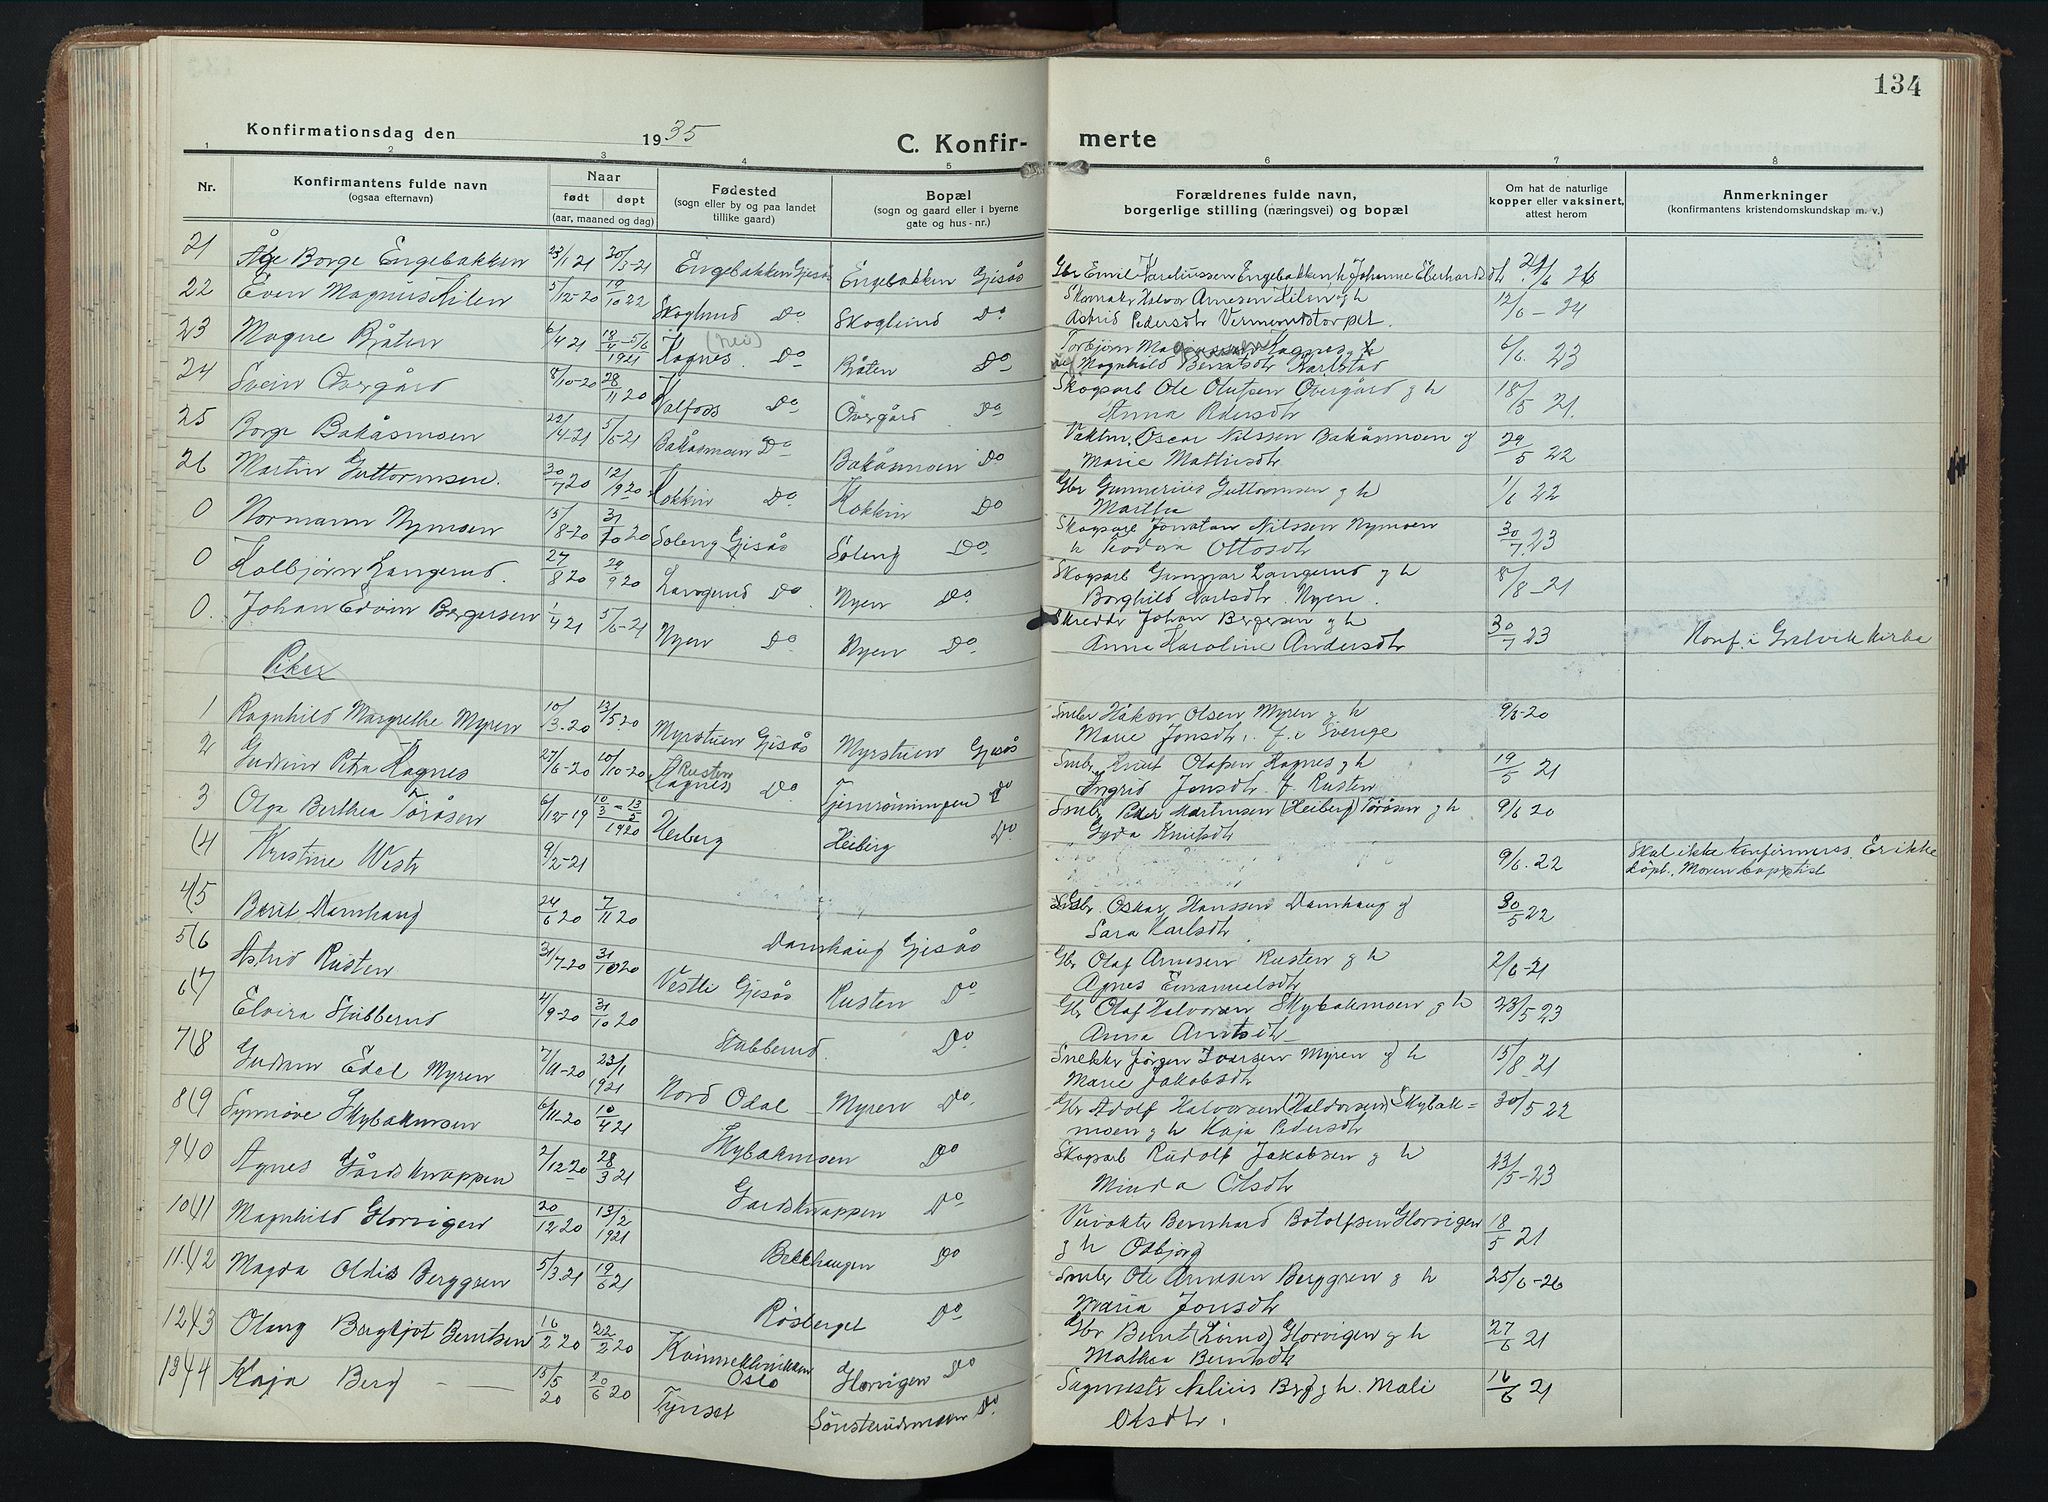 134
Konfirmationsdag den 1935
C. Konfir- merte
1 2 3 4 5 6 7 8
Nr. Konfirmantens fulde navn (ogsaa efternavn) Naar født døpt (aar, maaned og dag) Fødested (sogn eller by og paa landet tillike gaard) Bopæl (sogn og gaard eller i byerne gate og hus-nr.) Forældrenes fulde navn, borgerlige stilling (næringsvei) og bopæl Om hat de naturlige kopper eller vaksinert, attest herom Anmerkninger (konfirmantens kristendomskundskap m. v.)
21 Åge Borge Engebakken 23/1 21 30/3-21 Engebakken Gjesås Engebakken Gjesås Gbr Emil Engebakken Johanne Eberhardsdt 6 26
22 Even Magnus Kilen 5/12-20 19/10 22 Skoglund Do Skoglund Do Skomaker Halvor Arnesen Kilen g h
Astrid Pedersdtr Vermundstorpet. 12/6-24
23 Magne Bråten 6/4 21 18/4-5/6 1921 Kagnes (nei) Do Bråten Do Torbjørn Kagnes
Magnhild Berntsdtr Karlstad 6/6 23
24 Svein Overgård 8/10-20 28/11 20 Valfoss Do Overgård Do Skogsarb Ole Olufsen Overgård g h
Anna Pedersdtr 18/5 21.
25 Borge Bakåsmoen 5/6-21 Bakåsmoen Do Bakåsmoen Do Oscar Nilssen Bakåsmoen g
Marie Mathisdtr 29/5 22
26 Martin Guttormsen. 30/7 20 12/19 20 Kokkin Do Kokkin Do Gbr Gunnerius Guttormsen g h
Martha 1/6 22
0 Normann Nymoen 15/8-20 31/10 20 Soleng Gjesås Soleng Do Skogsarb Jonatan Nilssen Nymoen
h Teodora Ottosdtr 30/7.23
0 Kolbjørn Langerud. 27/8 20 29/9 20 Langerud Do Nyen Do Skogsarb Gunnar Langerud g h
Borghild Karlsdtr. Nyen. 8/8-21
0. Johan Edvin Bergersen 1/4 21 5/6-21 Nyen Do Nyen Do Skredder Johan Bergersen g h
Anna Karoline Andersdtr 30/7 23 Konf. i Gravik kirke
Piker
1 Ragnhild Margrethe Myren 10/3-20 13/5 20 Myrstuen Gjesås Myrstuen Gjesås Småbr Håkon Olsen Myren g h
Marie Jonsdtr. f. i Sverige 9/6-20
2 Gudrun Petra Kagnes 27/6-20 10/10-20 Rusten Kagnes Do Tjernrønningen Do Småbr Knut Olafsen Kagnes g h
Ingrid Jonsdtr f. Rusten 19/5 21
3 Olga Berthea Toråsen 6/12-19 10/3-13/5 1920 Heiberg Heiberg Do Småbr Peder Martinsen (Heiberg) Toråsen g h
Gyda Knutsdtr 9/6 20
(4 Kristine Westr 9/2-21 9/6.22 Skal ikke konfirmeres. Er ikke
døpt. Moren baptist
4(5 Berit Damhaug 24/6 20 7/11 20 Damhaug Gjesås Oskar Hanssen Damhaug g
Sara Karlsdtr 30/5 22
5(6 Astrid Rusten 31/7-20 31/10 20 Vestli Gjesås Rusten Do Gbr Olaf Arnesen Rusten g h
Agnes Emanuelsdtr 2/6-21
6(7 Elvira Stubberud 4/9-20 31/10 20 Stubberud. Do Gbr Olaf Halvorsen Skybakmoen g h
Anna Arntsdtr 23/5 23
7(8 Gudrun Edel Myren 7/11-20 23/1 1921 Nord Odal Myren Do. Snekker Jørgen Iversen Myren g h
Marie Jakobsdtr 15/8-21
8(9 Synnøve Skybakmoen 6/11-20 10/4 21 Skybakmoen Do Gbr Adolf Halvorsen (Haldorsen) Skybak=
moen g h Kaja Pedersdtr 30/5 22
9(10 Agnes Gårdsknappen 2/12 20 28/3 21 Gårdsknappen Do Skogsarb Rudolf Jakobsen g h
Minda Olsdtr 23/5-23
10(11 Magnhild Glorvigen 20/12 20 13/2 1921 Bekkhaugen Do Bernhard Botolfsen Glorvigen
g h Odbjørg 18/5 21
11.(12 Magda Oldis Berggren 5/3 21 19/6 21 Røsberget Do Småbr Ole Arnesen Berggren g h
Maria Jonsdtr 25/6-26
12(13 Olaug Bergljot Berntsen 16/2 20 22/2 20 Kvinneklinikken
Oslo Glorvigen Do Gbr Bernt (Lund) Glorvigen g h
Mathea Berntsdtr 27/6 21
13(14 Kaja Berg 15/5 20 20/6 20 Tynset Sønsterudmoen Do. Sagmester Nelius Berg g h. Mali
Olsdtr. 16/6 21